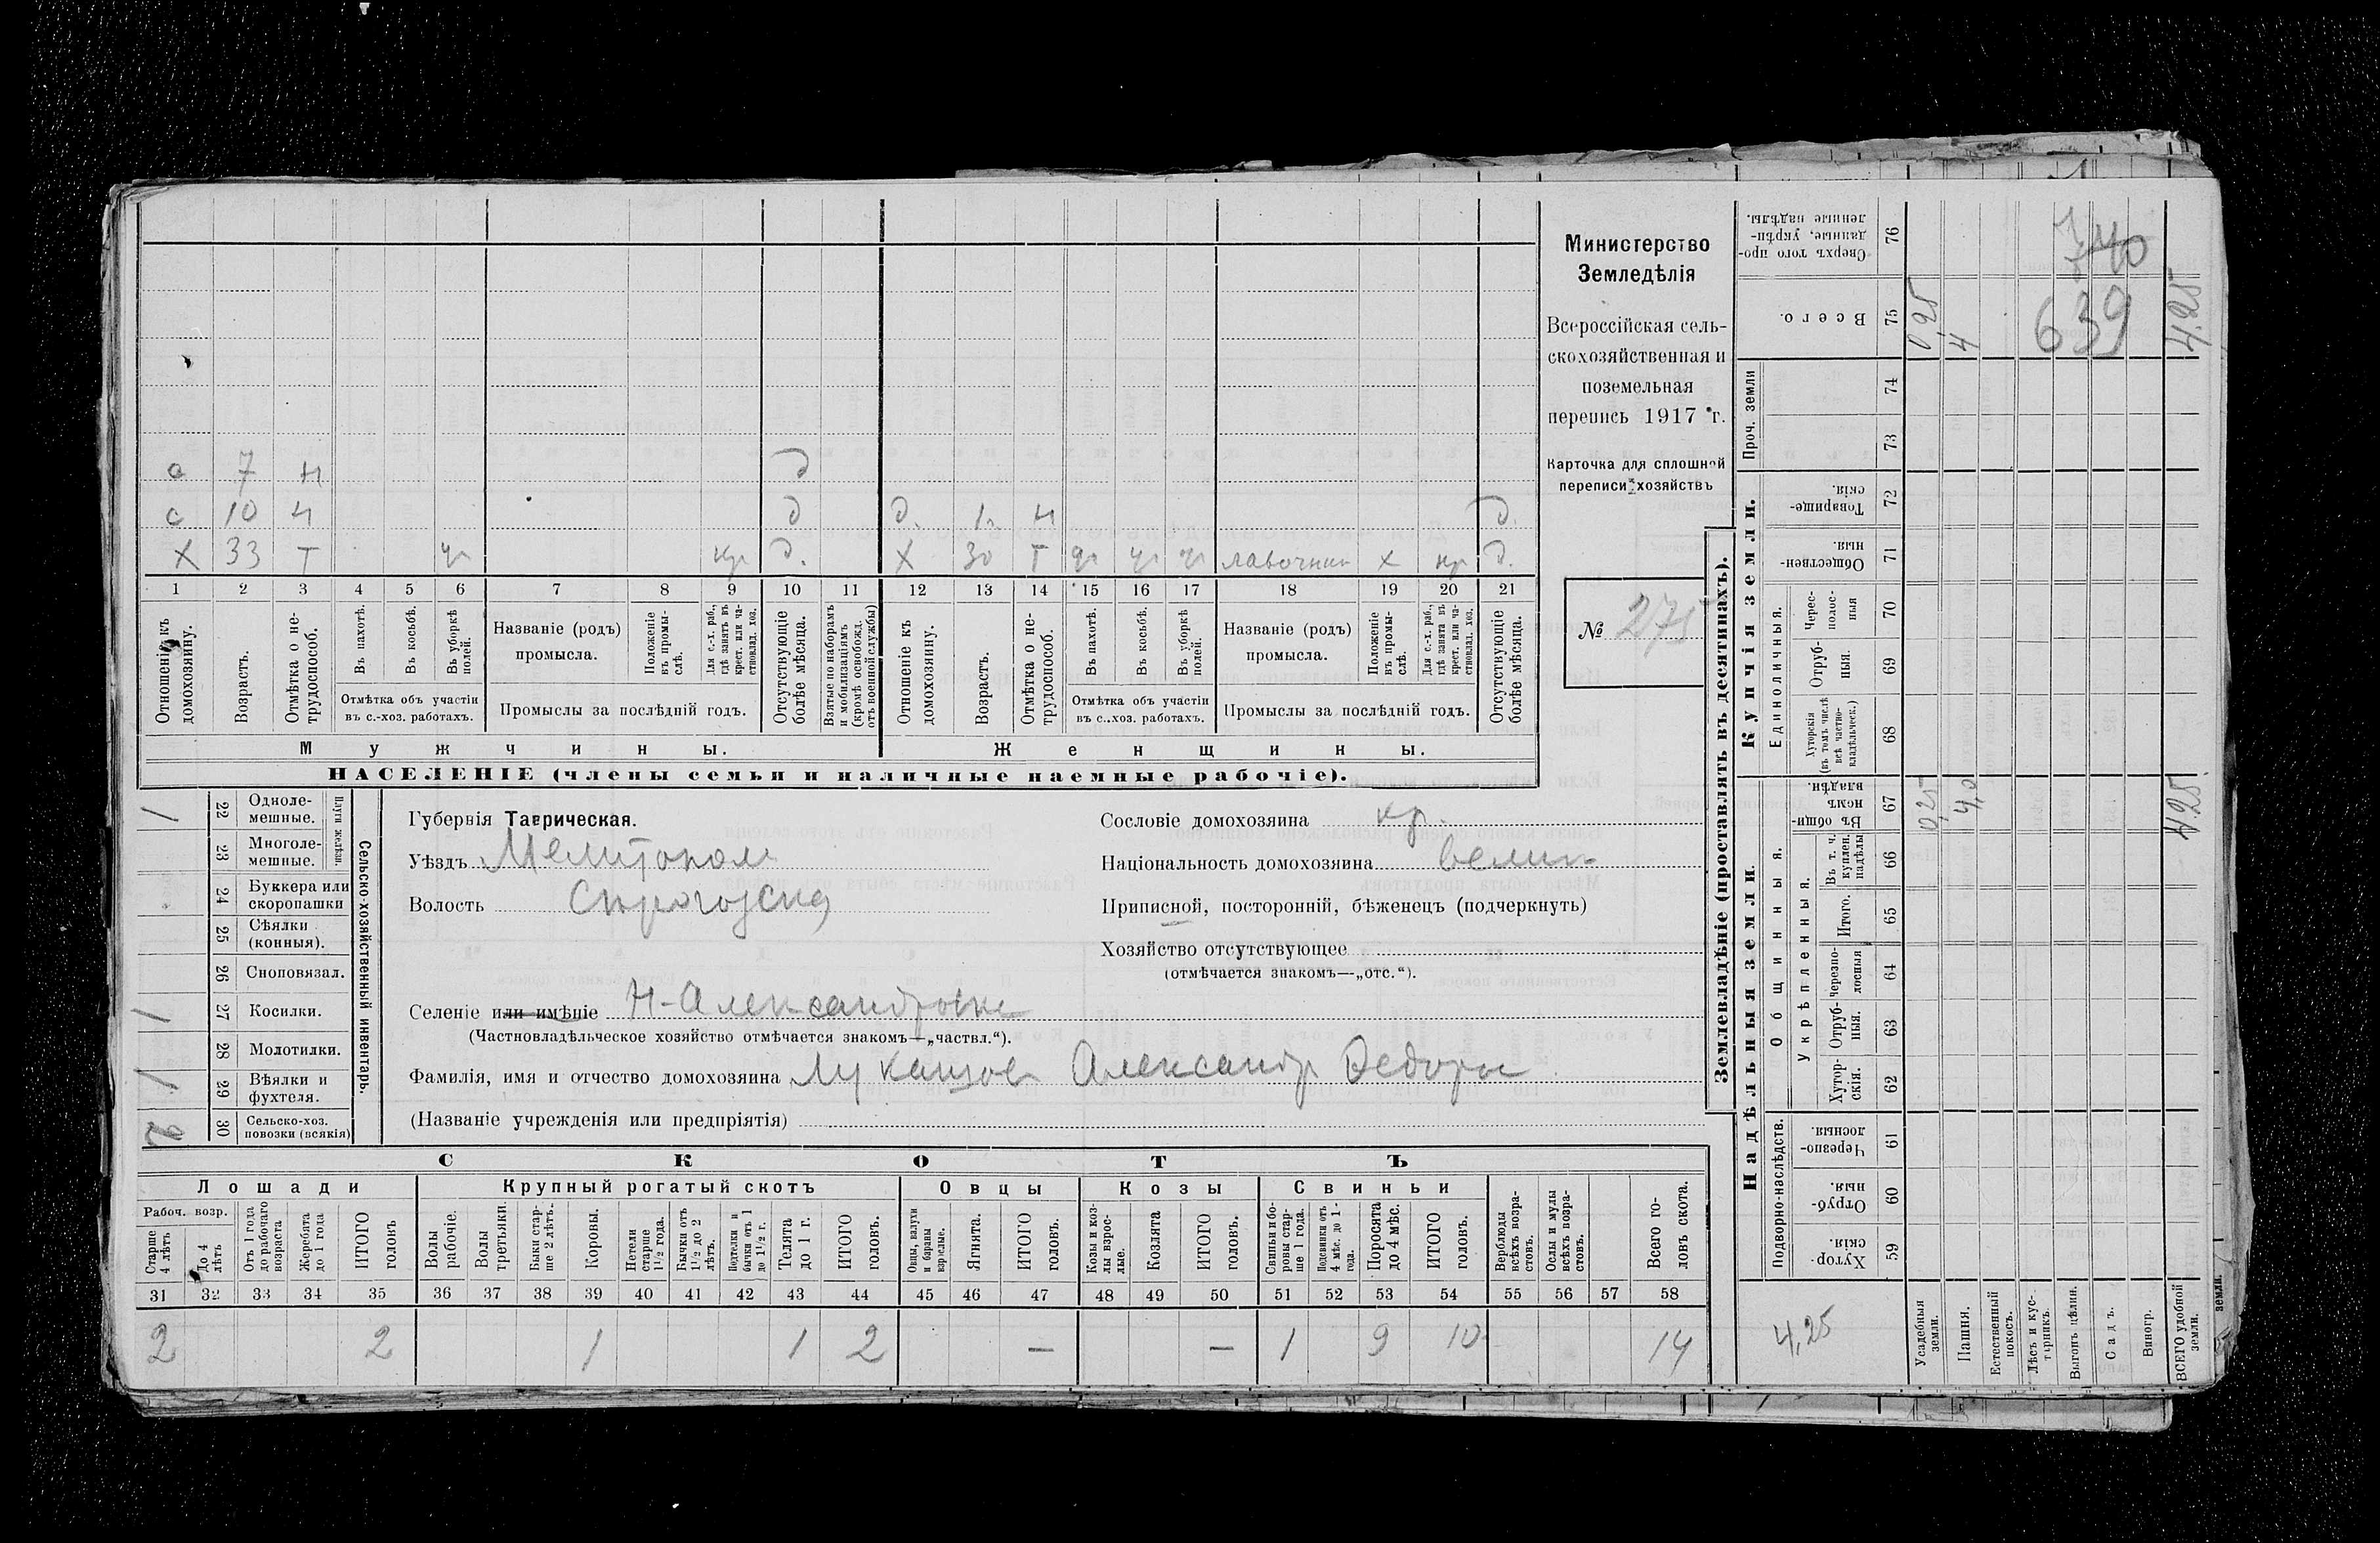 Министерство
Земледѣлія
Всероссійская сель-
скохозяйственная и
поземельная
перепись 1917 г.
Карточка для сплошной
переписи хозяйствъ
№ 275
а 7 н д
с 10 н д д. 1. н д.
х 33 т уг кр д. х 30 т уг уг уг лавочник х кр д.
1 2 3 4 5 6 7 8 9 10 11 12 13 14 15 16 17 18 19 20 21
Отношеніе къ домохозяину.
Возрастъ.
Отмѣтка о не-трудоспособ.
Въ пахотѣ.
Въ косьбѣ.
Въ уборкѣ полей.
Отмѣтка объ участіи
въ с.-хоз. работахъ.
Названіе (родъ)
промысла.
Положеніе въ промы-слѣ.
Для с.-х. раб., гдѣ занятъ въ крест. или ча-стновлад. хоз.
Промыслы за послѣдній годъ.
Отсутствующіе болѣе мѣсяца.
Взятые по наборамъ и мобилизаціямъ (кромѣ освобожд. отъ военной службы)
Отношеніе къ домохозяину.
Возрастъ.
Отмѣтка о не-трудоспособ.
Въ пахотѣ.
Въ косьбѣ.
Въ уборкѣ полей.
Отмѣтка объ участіи
въ с.-хоз. работахъ.
Названіе (родъ)
промысла.
Положеніе въ промы-слѣ.
Для с.-х. раб., гдѣ занята въ крест. или ча-стновлад. хоз.
Промыслы за послѣдній годъ.
Отсутствующіе болѣе мѣсяца.
Мужчины. Женщины.
НАСЕЛЕНІЕ (члены семьи и наличные наемные рабочіе).
Сельско-хозяйственный инвентарь.
Плуги желѣзн.
1 22 Одноле-мешные.
23 Многоле-мешные.
24 Буккера или скоропашки
25 Сѣялки (конныя).
26 Сноповязал.
1 27 Косилки.
28 Молотилки.
1 29 Вѣялки и фухтеля.
30 Сельско-хоз. повозки (всякія)
Губернія Таврическая.
Уѣздъ Мелитопол
Волость
Селеніе или имѣніе Н-Александровка
(Частновладѣльческое хозяйство отмѣчается знакомъ—„частвл.“).
Фамилія, имя и отчество домохозяина Александр Федоров
(Названіе учрежденія или предпріятія)
Сословіе домохозяина кр.
Національность домохозяина велик
Приписной, посторонній, бѣженецъ (подчеркнуть)
Хозяйство отсутствующее
(отмѣчается знакомъ—„отс.“).
СКОТЪ
Лошади Крупный рогатый скотъ Овцы Козы Свиньи
Рабоч. возр.
Старше 4 лѣтъ
До 4 лѣтъ
Отъ 1 года до рабочаго возраста
Жеребята до 1 года
ИТОГО головъ
Волы рабочіе.
Волы третьяки.
Быки стар-ше 2 лѣтъ.
Коровы.
Нетели старше 1½ года.
Бычки отъ 1½ до 2 лѣтъ.
Подтелки и бычки отъ 1 до 1½ г.
Телята до 1 г.
ИТОГО головъ.
Овцы, валухи и бараны взрослые.
Ягнята.
ИТОГО головъ.
Козы и коз-лы взрос-лые.
Козлята
ИТОГО головъ.
Свиньи и бо-ровы стар-ше 1 года.
Подсвинки отъ 4 мѣс. до 1 года.
Поросята до 4 мѣс.
ИТОГО головъ.
Верблюды всѣхъ возра-стовъ.
Ослы и мулы всѣхъ возра-стовъ.
Всего го-ловъ скота.
31 32 33 34 35 36 37 38 39 40 41 42 43 44 45 46 47 48 49 50 51 52 53 54 55 56 57 58
2 2 1 1 2 — — 1 9 10 14
Землевладѣніе (проставлять въ десятинахъ).
Купчія земли.
Надѣльныя земли.
Сверхъ того про-данные, укрѣп-ленные надѣлы. 76
Всего. 75 0,25 4 4,25
740
639
Проч. земли 74
73
Товарище-скія. 72
Обществен-ныя. 71
Единоличныя.
Черес-полос-ныя 70
Отруб-ныя. 69
Хуторскія (въ томъ числѣ всѣ частно-владѣльческ.) 68
Общинныя.
Въ общи-номъ владѣн. 67 0,25 4,0 4,25
Укрѣпленныя.
Въ т. ч. куплен. надѣлы 66
Итого. 65
Черезпо-лосныя 64
Отруб-ныя. 63
Хутор-скія. 62
Подворно-наслѣдств.
Черезпо-лосныя 61
Отруб-ныя. 60
Хутор-скія. 59
4,25
Усадебныя земли.
Пашня.
Естественный покосъ.
Лѣсъ и кус-тарникъ.
Выгонъ цѣлин.
Садъ.
Виногр.
ВСЕГО удобной земли.